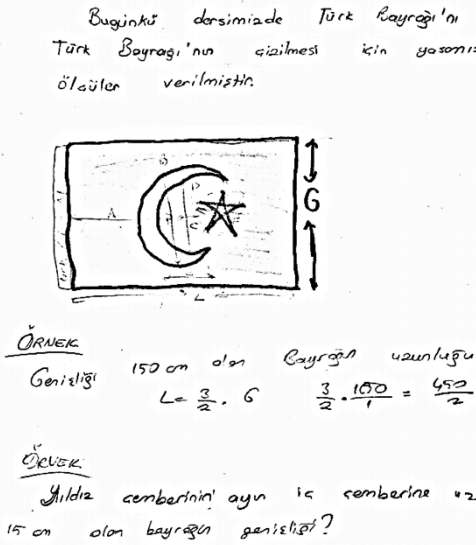 Bugünkü dersimizde Türk Bayrağı'nı
Türk Bayrağı'nın çizilmesi için yasamız
ölçüler verilmiştir.
B
A
D
C
G
L
ÖRNEK
Genişliği 150 cm olan Bayrağın uzunluğu
L= 3/2 . G 3/2 . 150/1 = 450/2
ÖRNEK
Yıldız çemberinin ayın iç çemberine uz
15 cm olan bayrağın genişliği?